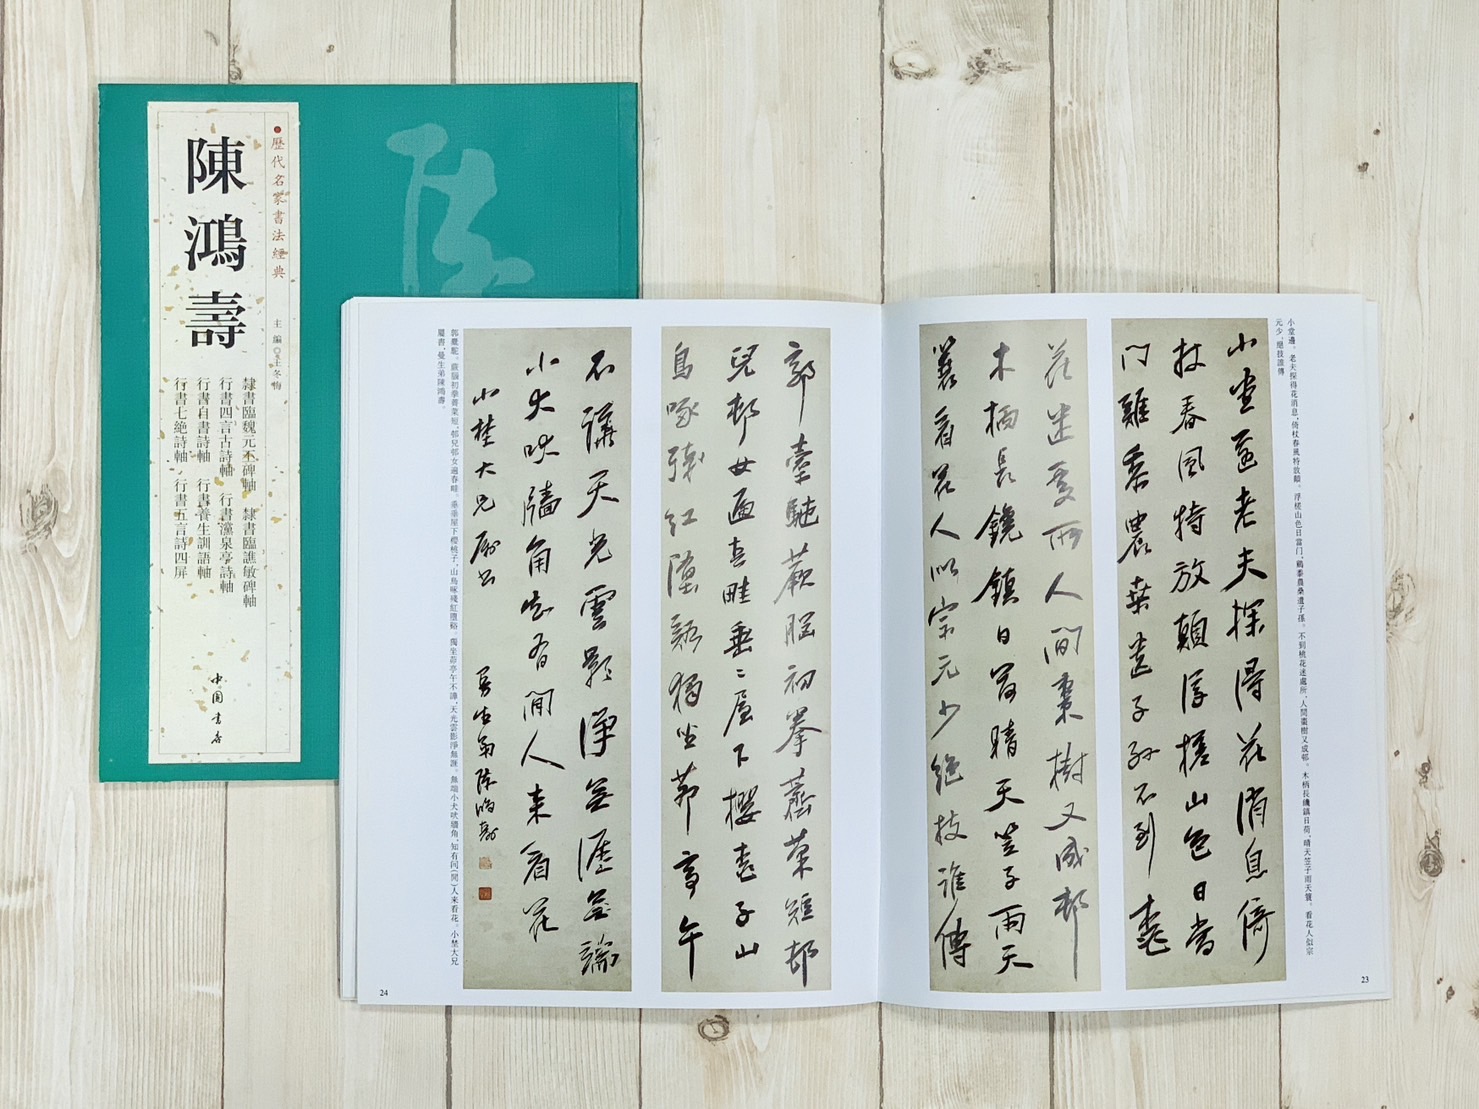 歷代名家書法經典
主編◎王冬梅
陳鴻壽
隸書臨魏元丕碑軸　隸書臨譙敏碑軸
行書四言古詩軸　行書濮泉亭詩軸
行書自書詩軸　行書養生訓語軸
行書七絶詩軸　行書五言詩四屏
中國書店
陳
小堂邊。老夫探得花消息，倚杖春風特放顛。浮槎山色日當门，鷄黍農桑遺子孫。不到桃花迷處所，人間棗樹又成邨。木柄長鑱鎮日荷，晴天笠子雨天蓑。看花人似宗
元少，絶技誰傳
小堂邊老夫探得花消息倚
杖春風特放顛浮槎山色日當
门雞黍農桒遺子孫不到桃
花迷處所人間棗樹又成邨
木柄長鑱鎮日荷晴天笠子雨天
蓑看花人似宗元少絶技誰傳
23
郭橐駝蕨腦初拳薺菜短邨
兒邨女過春畦垂〻屋下櫻桃子山
鳥啄殘紅墮谿獨坐茆亭午
不譁天光雲影淨無涯無端
小犬吠牆角知有閒人来看花
小楚大兄屬書
曼生弟陳鴻壽
郭橐駝。蕨腦初拳薺菜短，邨兒邨女過春畦。垂垂屋下櫻桃子，山鳥啄殘紅墮谿。獨坐茆亭午不譁，天光雲影淨無涯。無端小犬吠牆角，知有问（閒）人来看花。小楚大兄
屬書，曼生弟陳鴻壽。
24